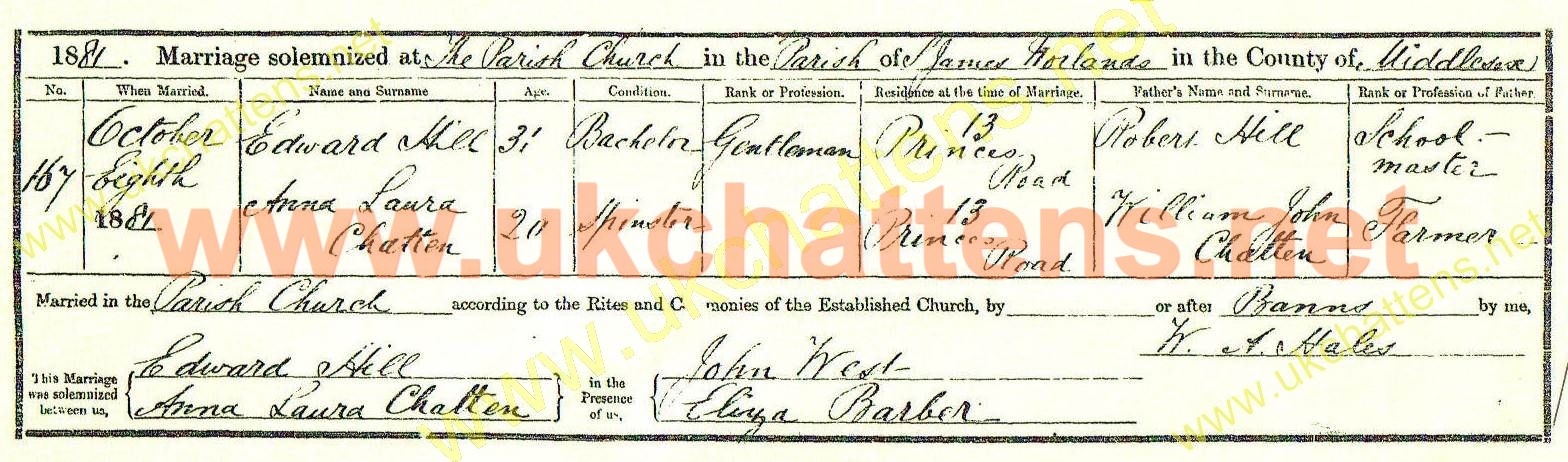 1881. Marriage solemnized at The Parish Church in the Parish of St James Norlands in the County of Middlesex
No. When Married. Name and Surname Age. Condition. Rank or Profession. Residence at the time of Marriage. Father's Name and Surname. Rank or Profession of Father.
167 October Eighth 1881
Edward Hill 31 Bachelor Gentleman 13 Princes Road Robert Hill School-master
Anna Laura Chatten Spinster 13 Princes Road William John Chatten Farmer
www.ukchattens.net
Married in the Parish Church according to the Rites and C monies of the Established Church, by or after Banns by me,
W. A. Hales
This Marriage was solemnized between us, Edward Hill Anna Laura Chatten
in the Presence of us, John West Eliza Barber
www.ukchattens.net
www.ukchattens.net
www.ukchattens.net
www.ukchattens.net